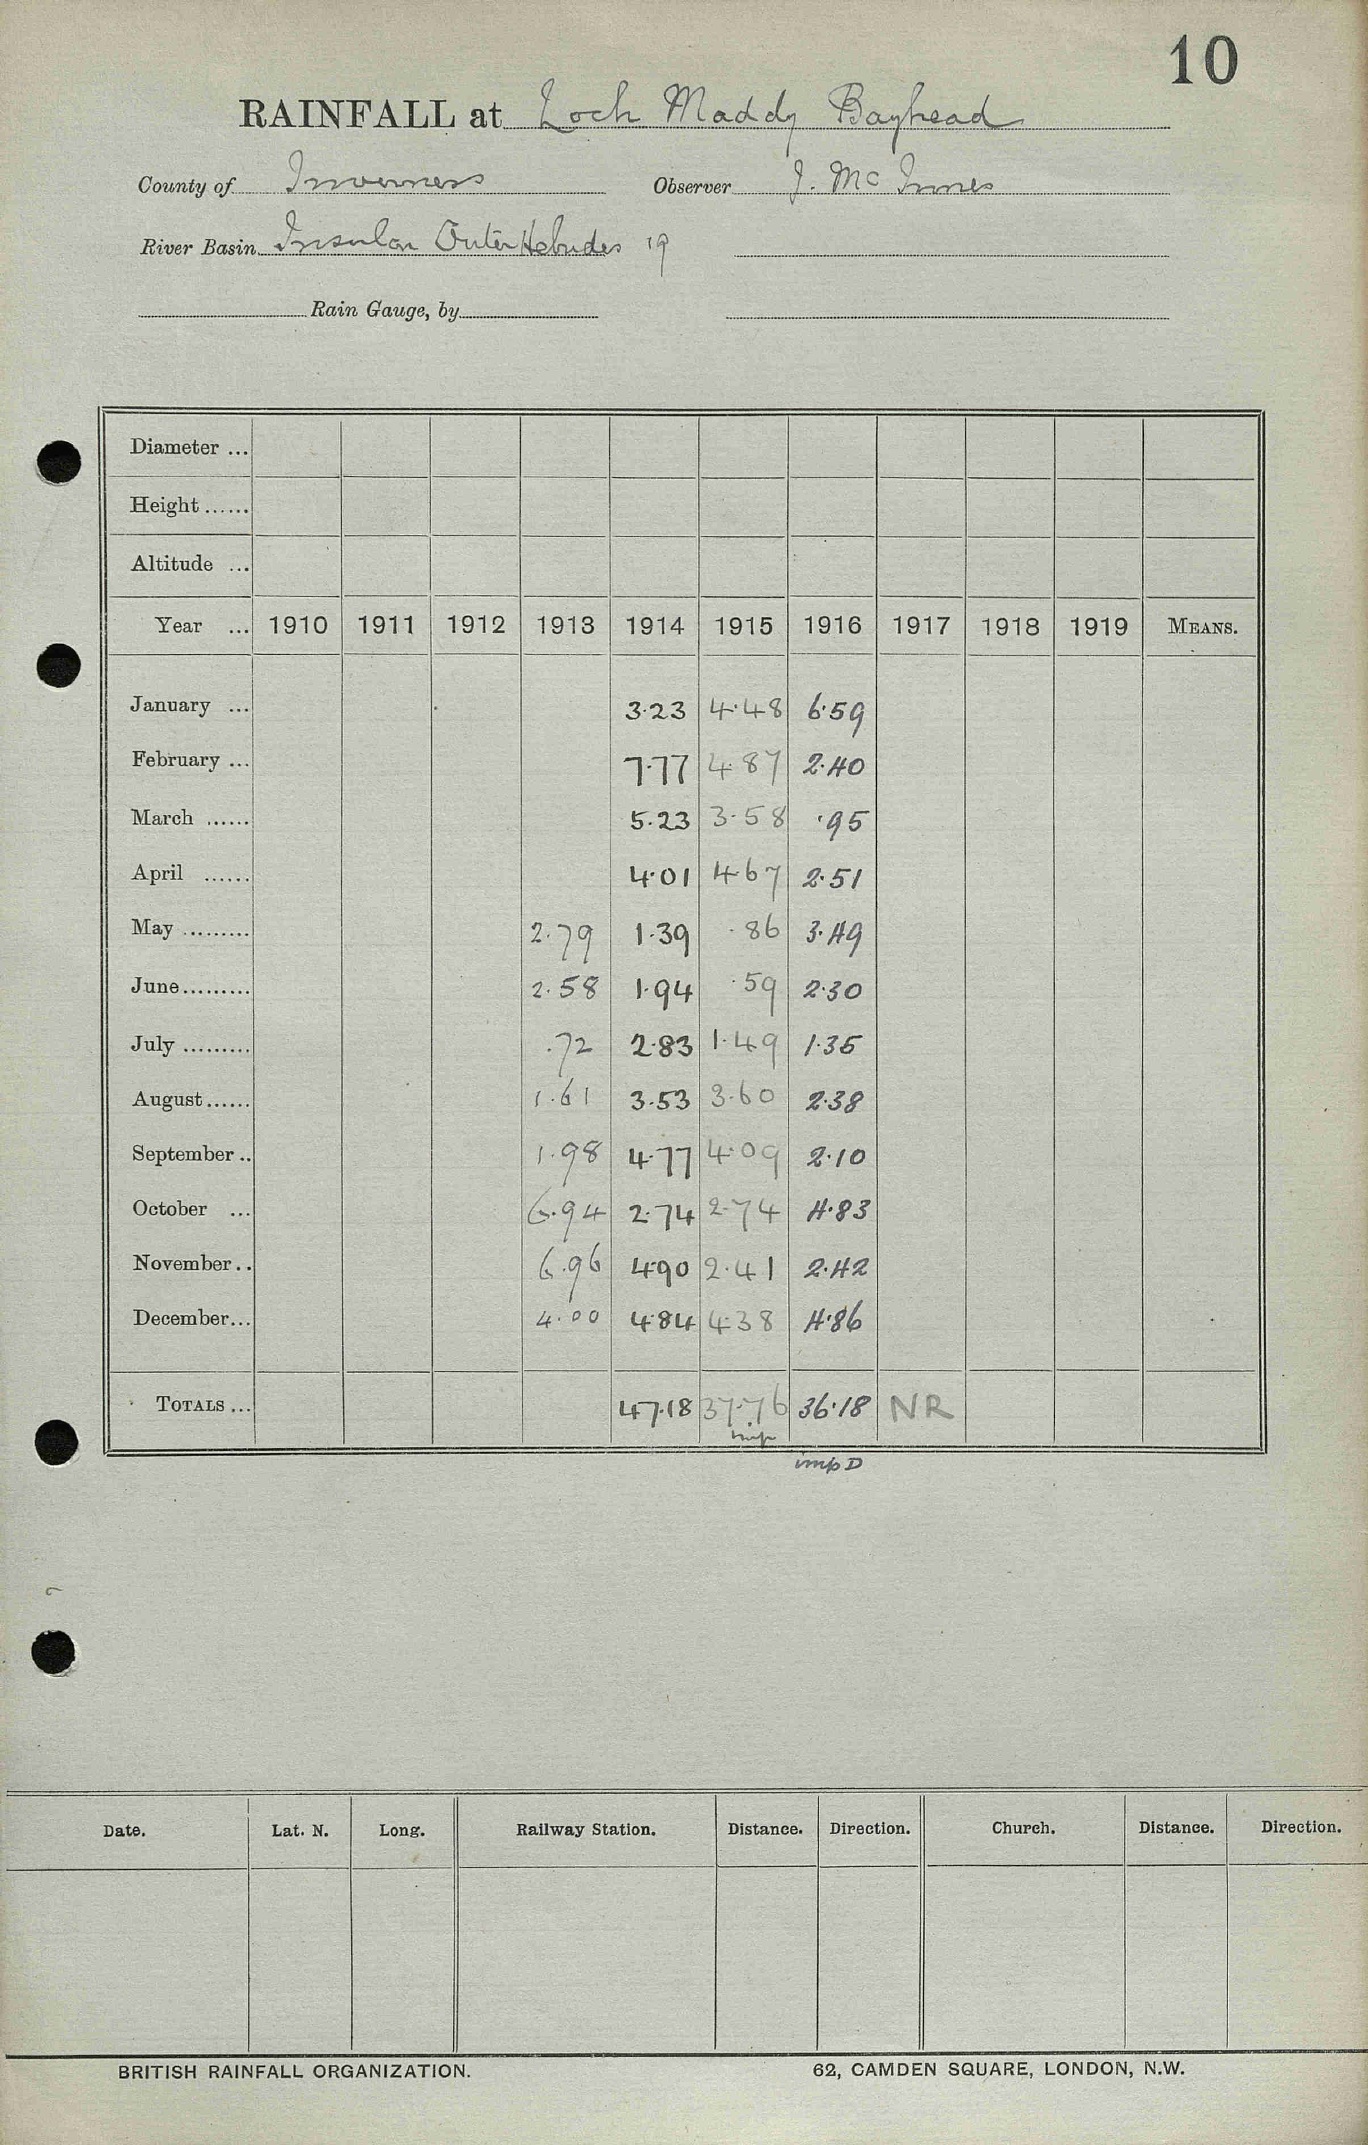 10
RAINFALL at Loch Maddy Bayhead
County of Inverness Observer J. McInnes
River Basin Insular Outer Hebrides 19
Rain Gauge, by
Diameter ...
Height ......
Altitude ...
Year ... 1910 1911 1912 1913 1914 1915 1916 1917 1918 1919 MEANS.
January ... 3.23 4.48 6.59
February ... 7.77 4.87 2.40
March ...... 5.23 3.58 .95
April ...... 4.01 4.67 2.51
May ......... 2.79 1.39 .86 3.49
June......... 2.58 1.94 .59 2.30
July ......... .72 2.83 1.49 1.35
August...... 1.61 3.53 3.60 2.38
September .. 1.98 4.77 4.09 2.10
October ... 6.94 2.74 2.74 4.83
November .. 6.96 4.90 2.41 2.42
December... 4.00 4.84 4.38 4.86
TOTALS ... 47.18 37.76 36.18 NR
imp
imp D
Date. Lat. N. Long. Railway Station. Distance. Direction. Church. Distance. Direction.
BRITISH RAINFALL ORGANIZATION. 62, CAMDEN SQUARE, LONDON, N.W.